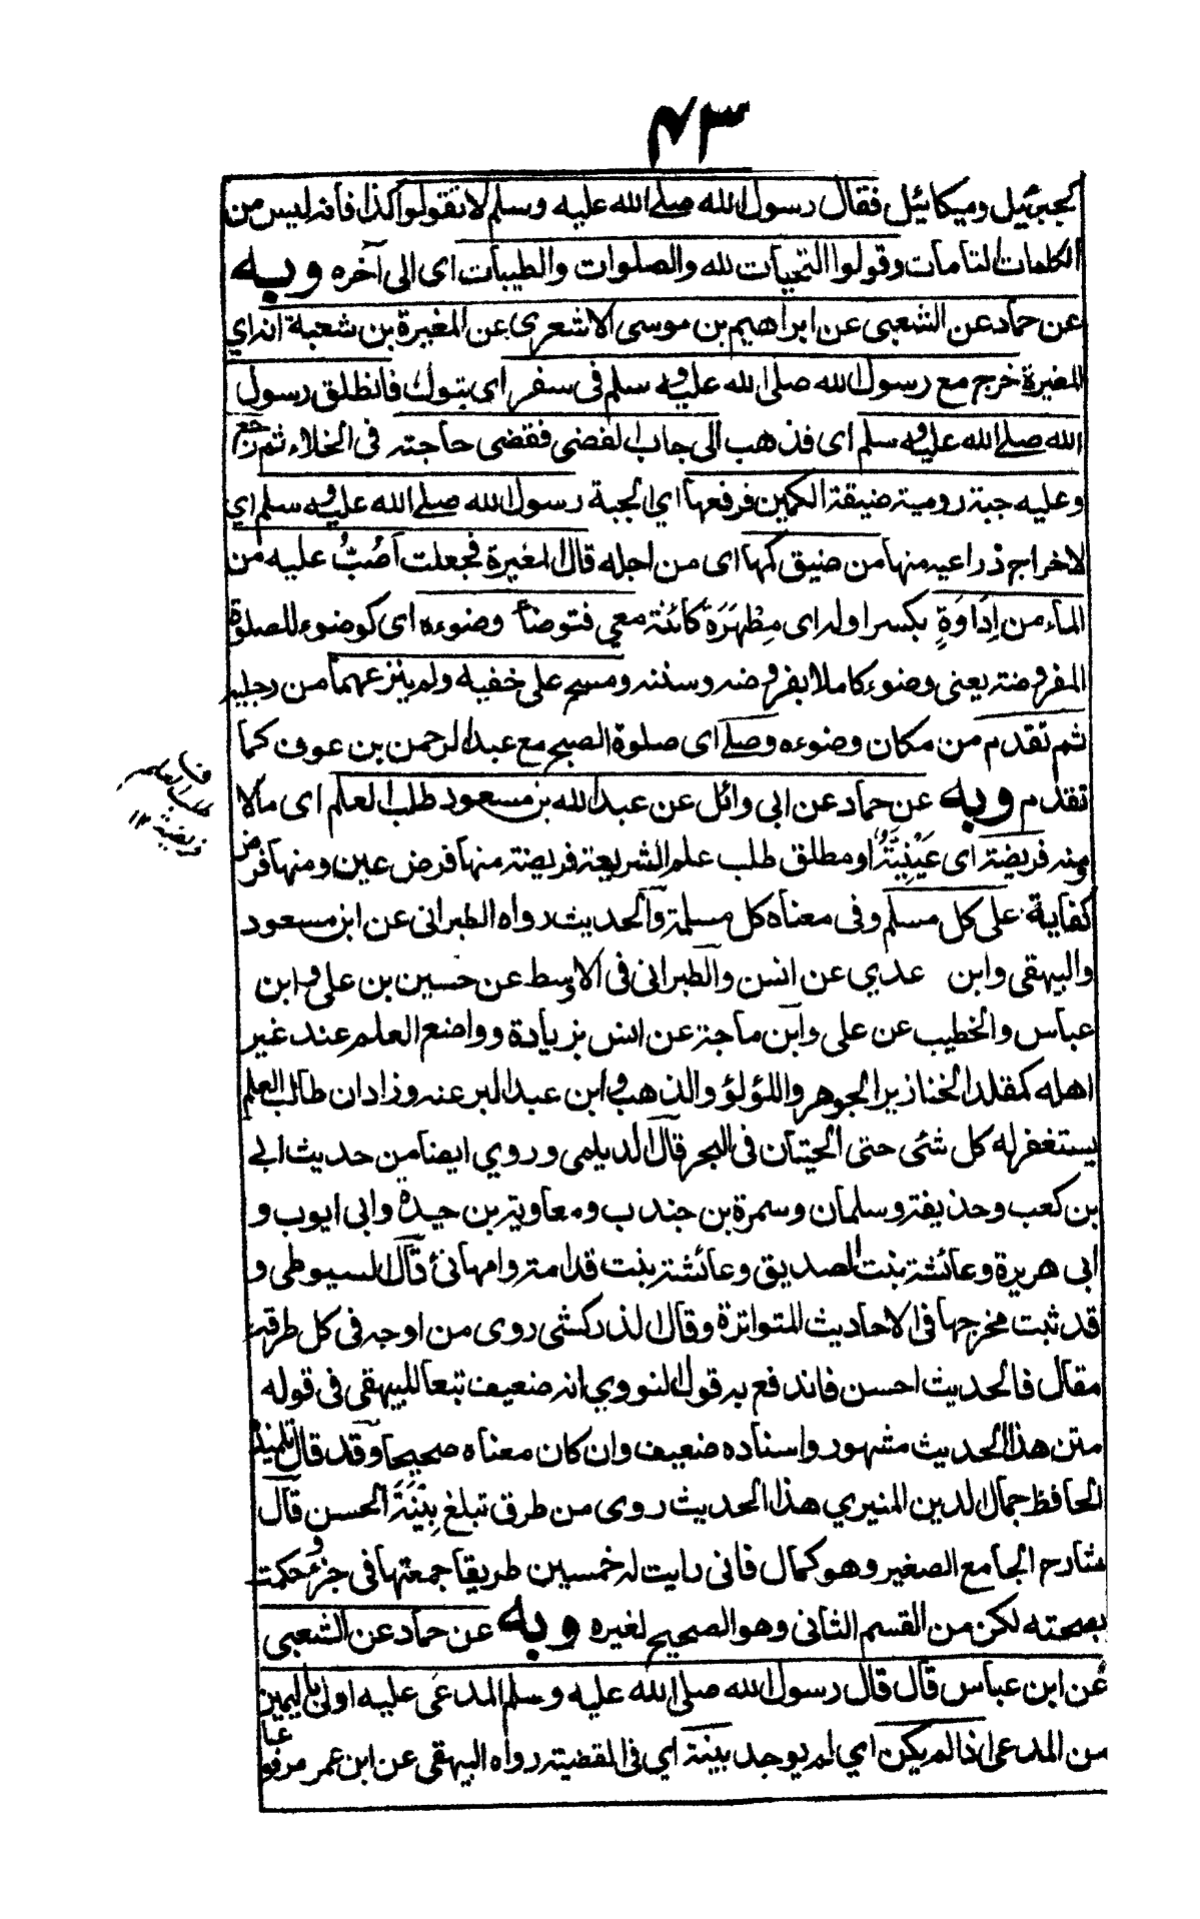 ۴۳
لجبرئيل وميكائيل فقال رسول الله صلے الله عليه وسلم لا تقولوا كذا فانه ليس من
الكلمات التامات وقولوا التحيات لله والصلوات والطيبات اى الى آخره وبه
عن حماد عن الشعبى عن ابراهيم بن موسى الاشعرى عن المغيرة بن شعبة انه اي
المغيرة خرج مع رسول الله صلى الله عليه وسلم فى سفر اى بتبوك فانطلق رسول
الله صلے الله عليه وسلم اى فذهب الى جاب لفضى فقضى حاجته فى الخلاء ثم رجع
وعليه جبة رومية ضيقة الكمين فرفعها اي الجبة رسول الله صلے الله عليه وسلم اي
لاخراج ذراعيه منها من ضيق كمها اى من اجله قال المغيرة فجعلت اَصُبُّ عليه من
الماء من اِدَاوَةٍ بكسر اوله اى مِطْهَرَة كائنة معي فتوضأ وضوءه اى كوضوء للصلوة
المفروضة يعنى وضوء كاملا بفروضه وسننه ومسح على خفيه ولم ينزعهما من رجليه
ثم تقدم من مكان وضوءه وصلے اى صلوة الصبح مع عبد الرحمن بن عوف كما
تقدم وبه عن حماد عن ابى وائل عن عبد الله بن مسعود طلب العلم اى مالا
منه فريضة اى عَيْنِيَّةٌ او مطلق طلب علم الشريعة فريضة منها فرض عين ومنها فرض
كفاية على كل مسلم وفى معناه كل مسلمة والحديث رواه الطبرانى عن ابن مسعود
والبيهقى وابن عدي عن انس والطبرانى فى الاوسط عن حسين بن على وابن
عباس والخطيب عن على وابن ماجة عن انس بزيادة وواضع العلم عند غير
اهله كمقلد الخنازير الجوهر واللؤلؤ والذهب وابن عبد البر عنه وزاد ان طالب العلم
يستغفر له كل شئى حتى الحيتان فى البحر قال الديلمى وروي ايضا من حديث ابي
بن كعب وحذيفة وسلمان وسمرة بن جندب ومعاوية بن حيدة وابى ايوب و
ابى هريرة وعائشة بنت الصديق وعائشة بنت قدامة وام هانئ قال السيوطى و
قد ثبت مخرجها فى الاحاديث المتواترة وقال الذركشى روى من اوجه فى كل طرقه
مقال فالحديث احسن فاندفع به قول النووي انه ضعيف تبعا للبيهقى فى قوله
متن هذا الحديث مشهور واسناده ضعيف وان كان معناه صحيحا وقد قال تلميذه
الحافظ جمال الدين المنيري هذا الحديث روى من طرق تبلغ بِتْيَةَ الحسن قال
شارح الجامع الصغير وهو كمال فانى رايت له خمسين طريقا جمعتها فى جزء وحكمت
بصحته لكن من القسم الثانى وهو الصحيح لغيره وبه عن حماد عن الشعبى
عن ابن عباس قال قال رسول الله صلى الله عليه وسلم المدعى عليه اولى باليمين
من المدعى اذا لم يكن اي لم يوجد بينة اي فى المقضية رواه البيهقى عن ابن عمر مرفوعا
طلب العلم
فريضة ١٢